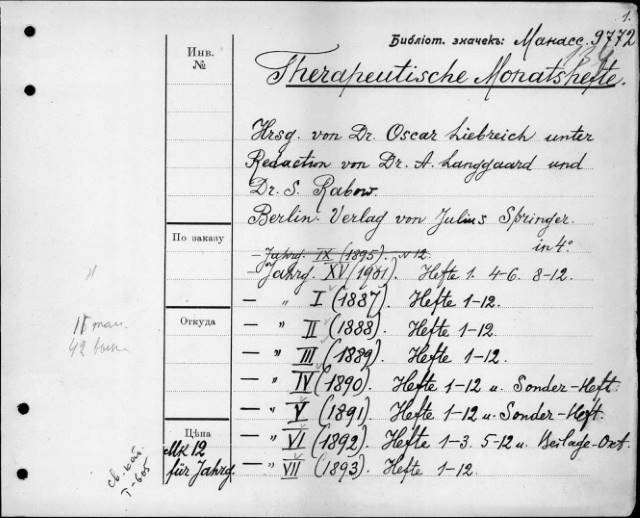 1.
Библіот. значекъ: Манасс. 9772
Инв.
№
Therapeutische Monatshefte.
Hrsg. von Dr. Oscar Liebreich unter
Redaction von Dr. A. Langgaard und
Dr. S. Rabow.
Berlin. Verlag von Julius Springer.
in 4°
По заказу
— Jahrg. IX (1895). N 12.
— Jahrg. XV (1901). Hefte 1. 4-6. 8-12.
— „ I (1887). Hefte 1-12.
Откуда
— „ II (1888). Hefte 1-12.
— „ III (1889). Hefte 1-12.
— „ IV (1890). Hefte 1-12 u. Sonder-Heft.
— „ V (1891). Hefte 1-12 u. Sonder-Heft.
Цѣна
— „ VI (1892). Hefte 1-3. 5-12 u. Beilage-Oct.
Mk 12
für Jahrg.
— „ VII (1893). Hefte 1-12.